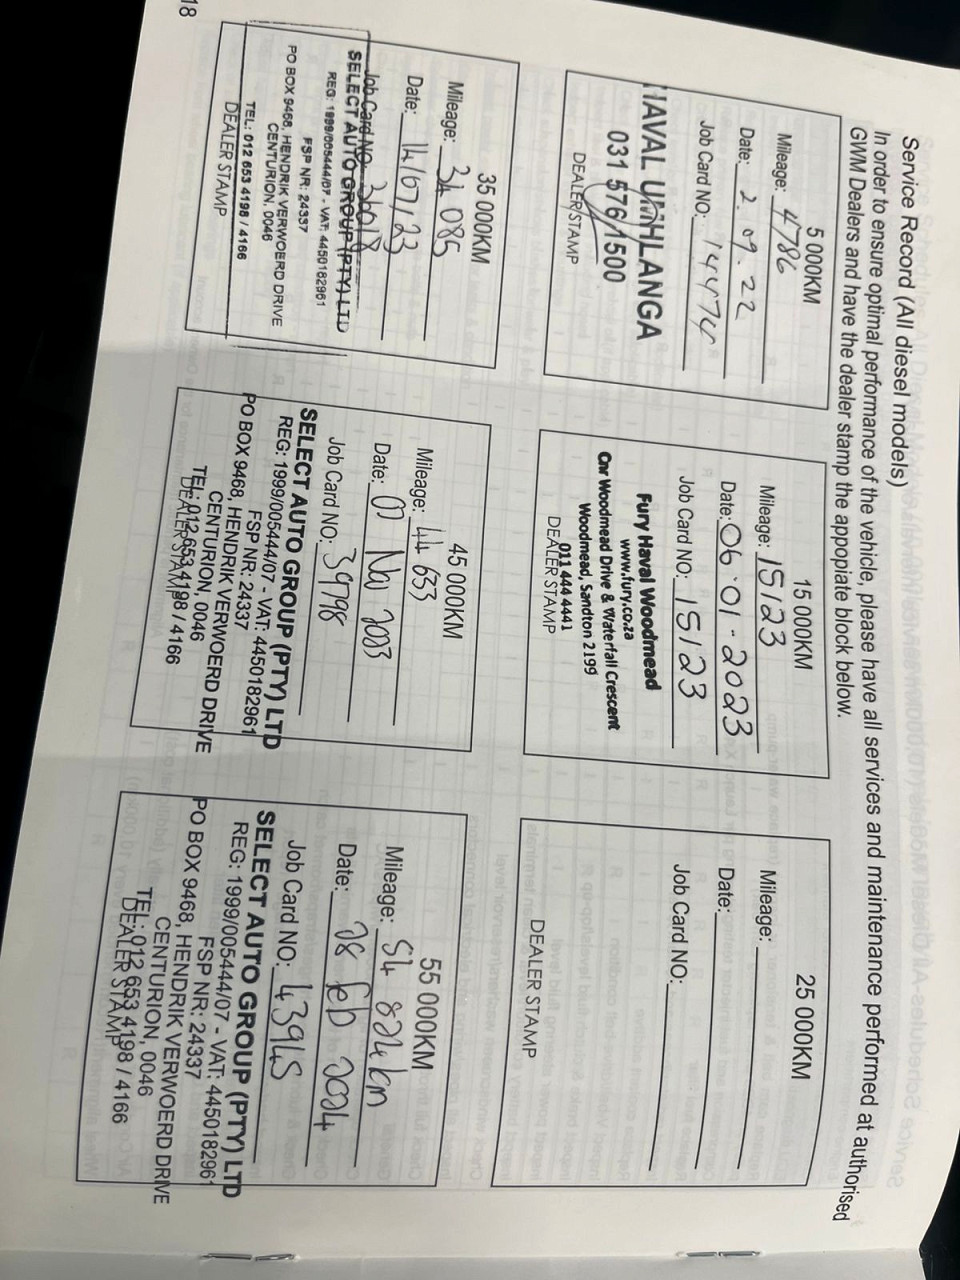 Service Record (All diesel models)
In order to ensure optimal performance of the vehicle, please have all services and maintenance performed at authorised
GWM Dealers and have the dealer stamp the appopiate block below.
5 000KM
Mileage: 4786
Date: 2.09.22
Job Card NO: 14474
HAVAL UMHLANGA
031 576 1500
DEALER STAMP
15 000KM
Mileage: 15123
Date: 06.01-2023
Job Card NO: 15123
Fury Haval Woodmead
www.fury.co.za
Cnr Woodmead Drive & Waterfall Crescent
Woodmead, Sandton 2199
011 444 4441
DEALER STAMP
25 000KM
Mileage:
Date:
Job Card NO:
DEALER STAMP
35 000KM
Mileage: 34 085
Date: 14/07/23
Job Card NO: 36018
SELECT AUTO GROUP (PTY) LTD
REG: 1999/005444/07 - VAT: 4450182961
FSP NR: 24337
PO BOX 9468, HENDRIK VERWOERD DRIVE
CENTURION, 0046
TEL: 012 653 4198 / 4166
DEALER STAMP
45 000KM
Mileage: 44 633
Date: 07 Nov 2023
Job Card NO: 39798
SELECT AUTO GROUP (PTY) LTD
REG: 1999/005444/07 - VAT: 4450182961
FSP NR: 24337
PO BOX 9468, HENDRIK VERWOERD DRIVE
CENTURION, 0046
TEL: 012 653 4198 / 4166
DEALER STAMP
55 000KM
Mileage: 54 824km
Date: 28 feb 2024
Job Card NO: 43945
SELECT AUTO GROUP (PTY) LTD
REG: 1999/005444/07 - VAT: 4450182961
FSP NR: 24337
PO BOX 9468, HENDRIK VERWOERD DRIVE
CENTURION, 0046
TEL: 012 653 4198 / 4166
DEALER STAMP
18